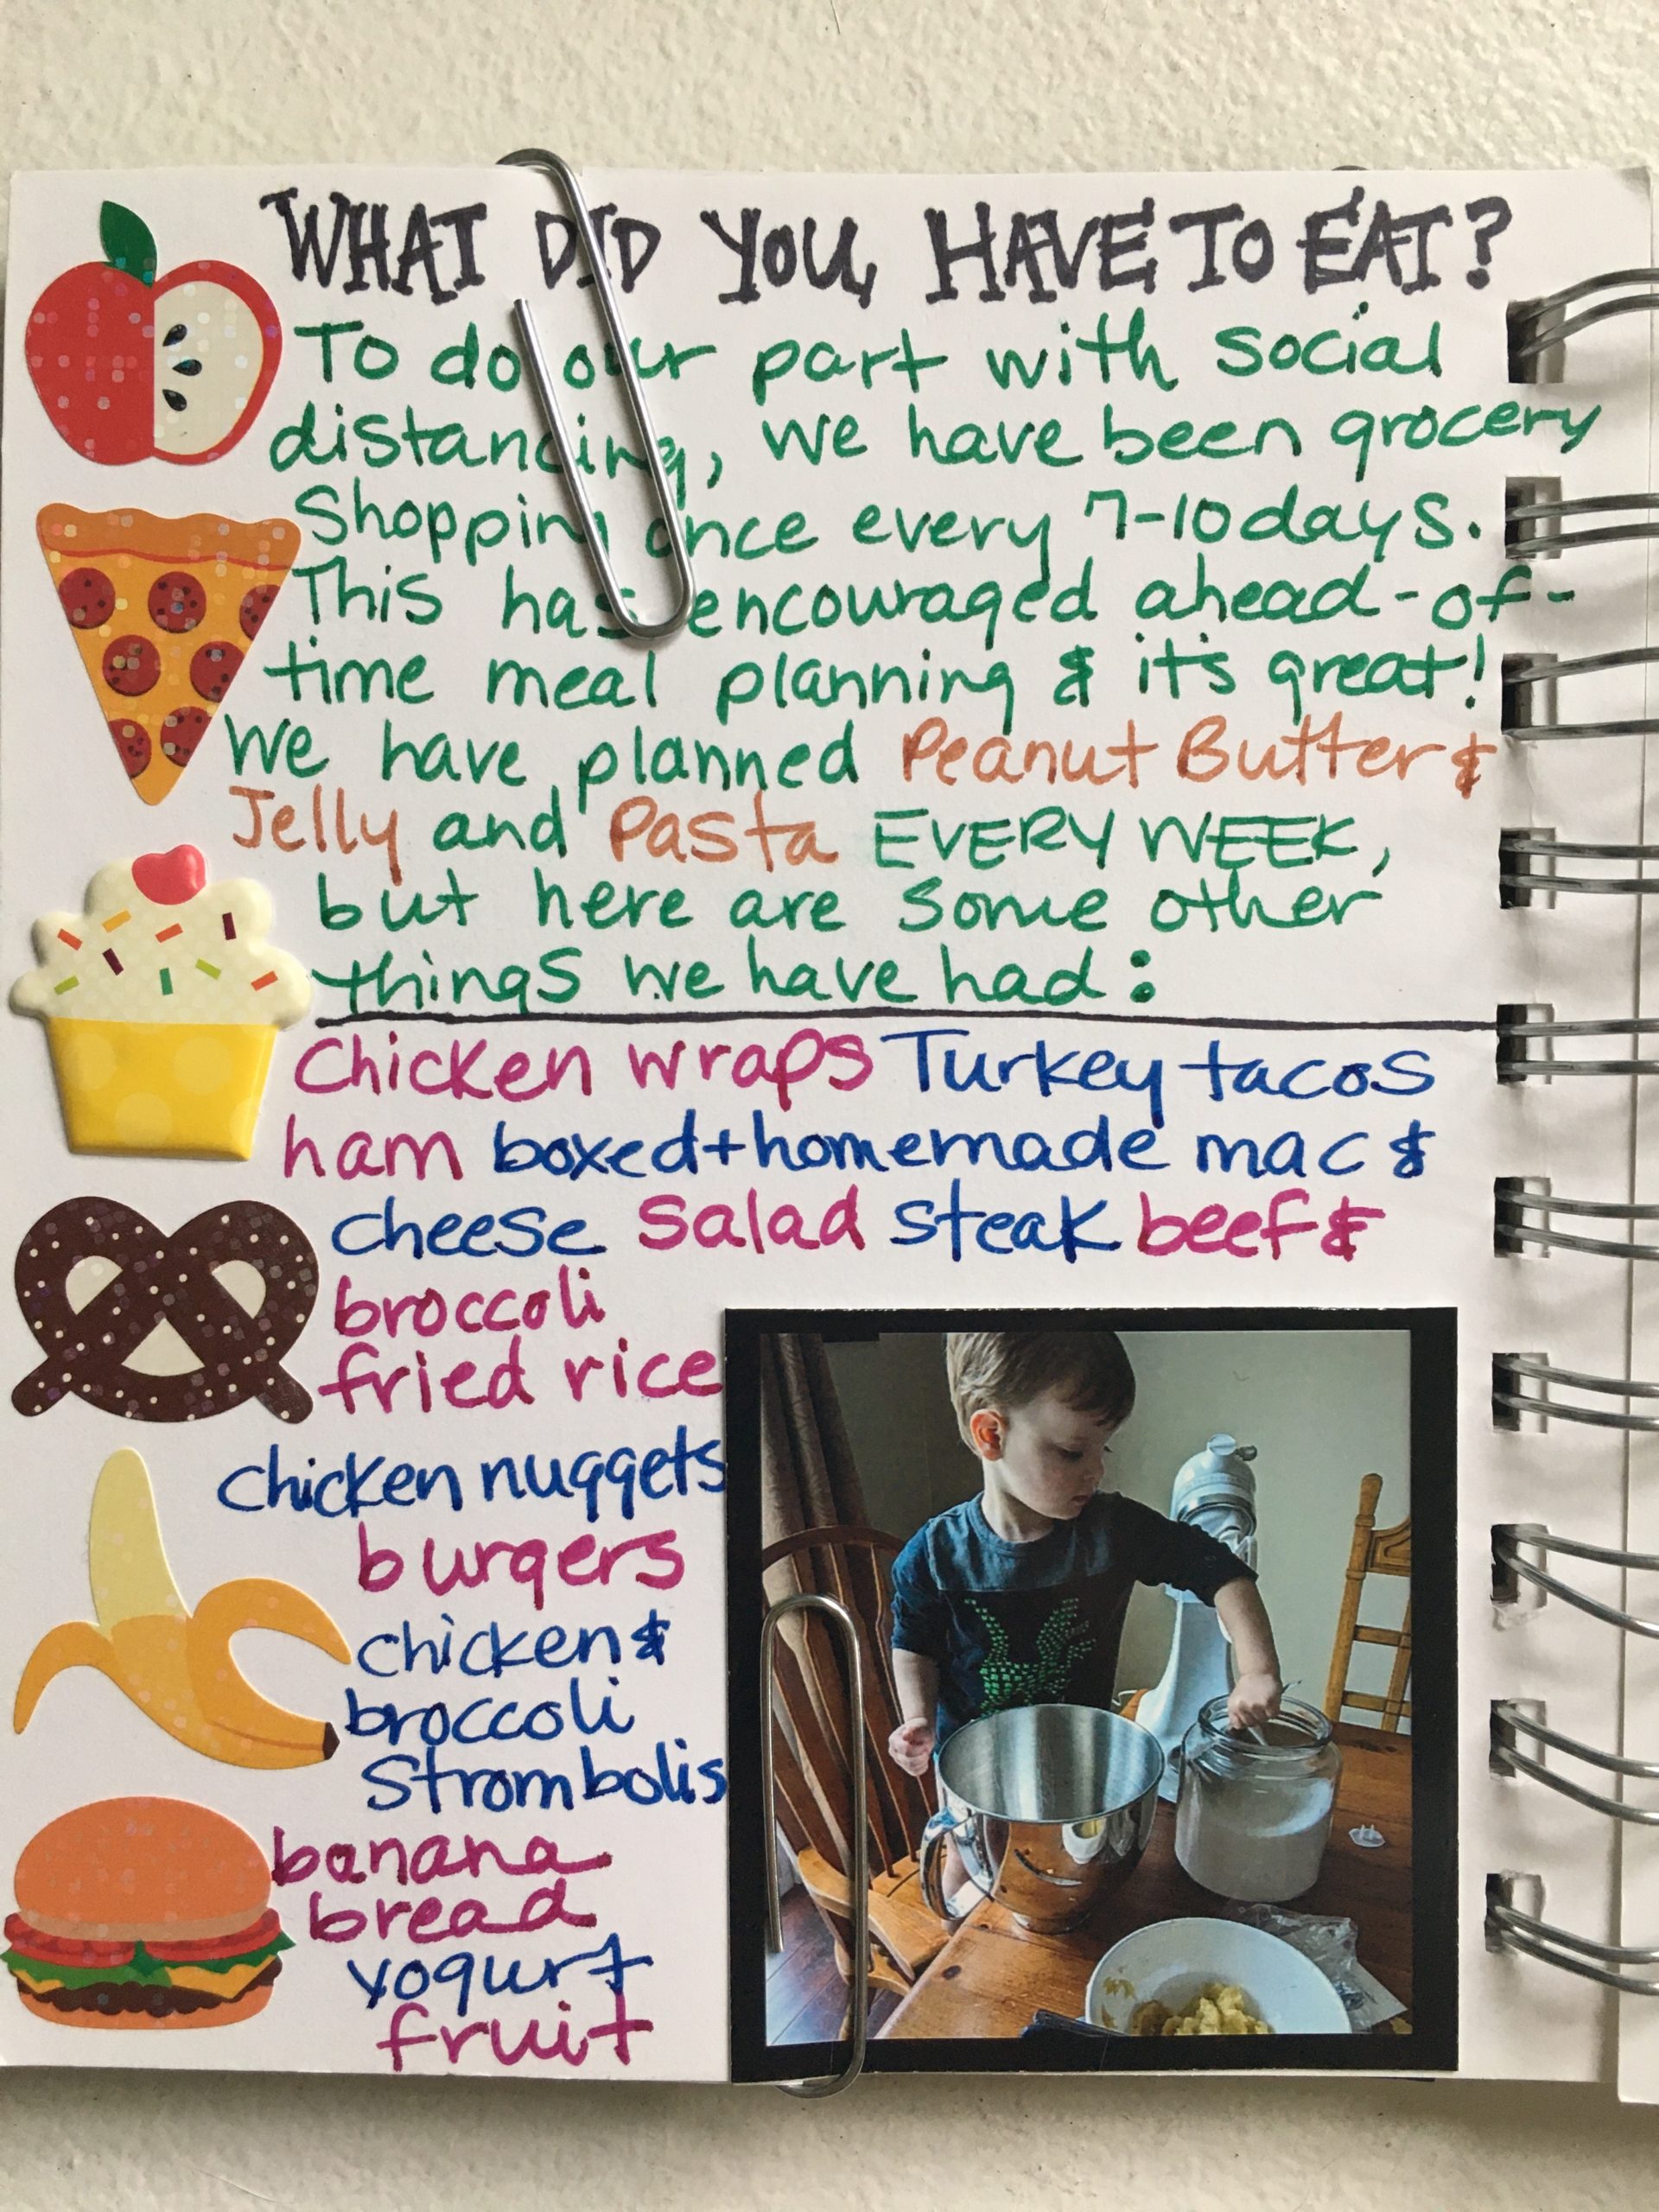 WHAT DID YOU HAVE TO EAT?
To do our part with social
distancing, we have been grocery
Shopping once every 7-10 days.
This has encouraged ahead-of-
time meal planning & it's great!
We have planned Peanut Butter &
Jelly and Pasta EVERY WEEK,
but here are some other
things we have had:
Chicken wraps Turkey tacos
ham boxed+homemade mac &
cheese Salad steak beef &
broccoli
fried rice
chicken nuggets
burgers
chicken &
broccoli
Strombolis
banana
bread
yogurt
fruit